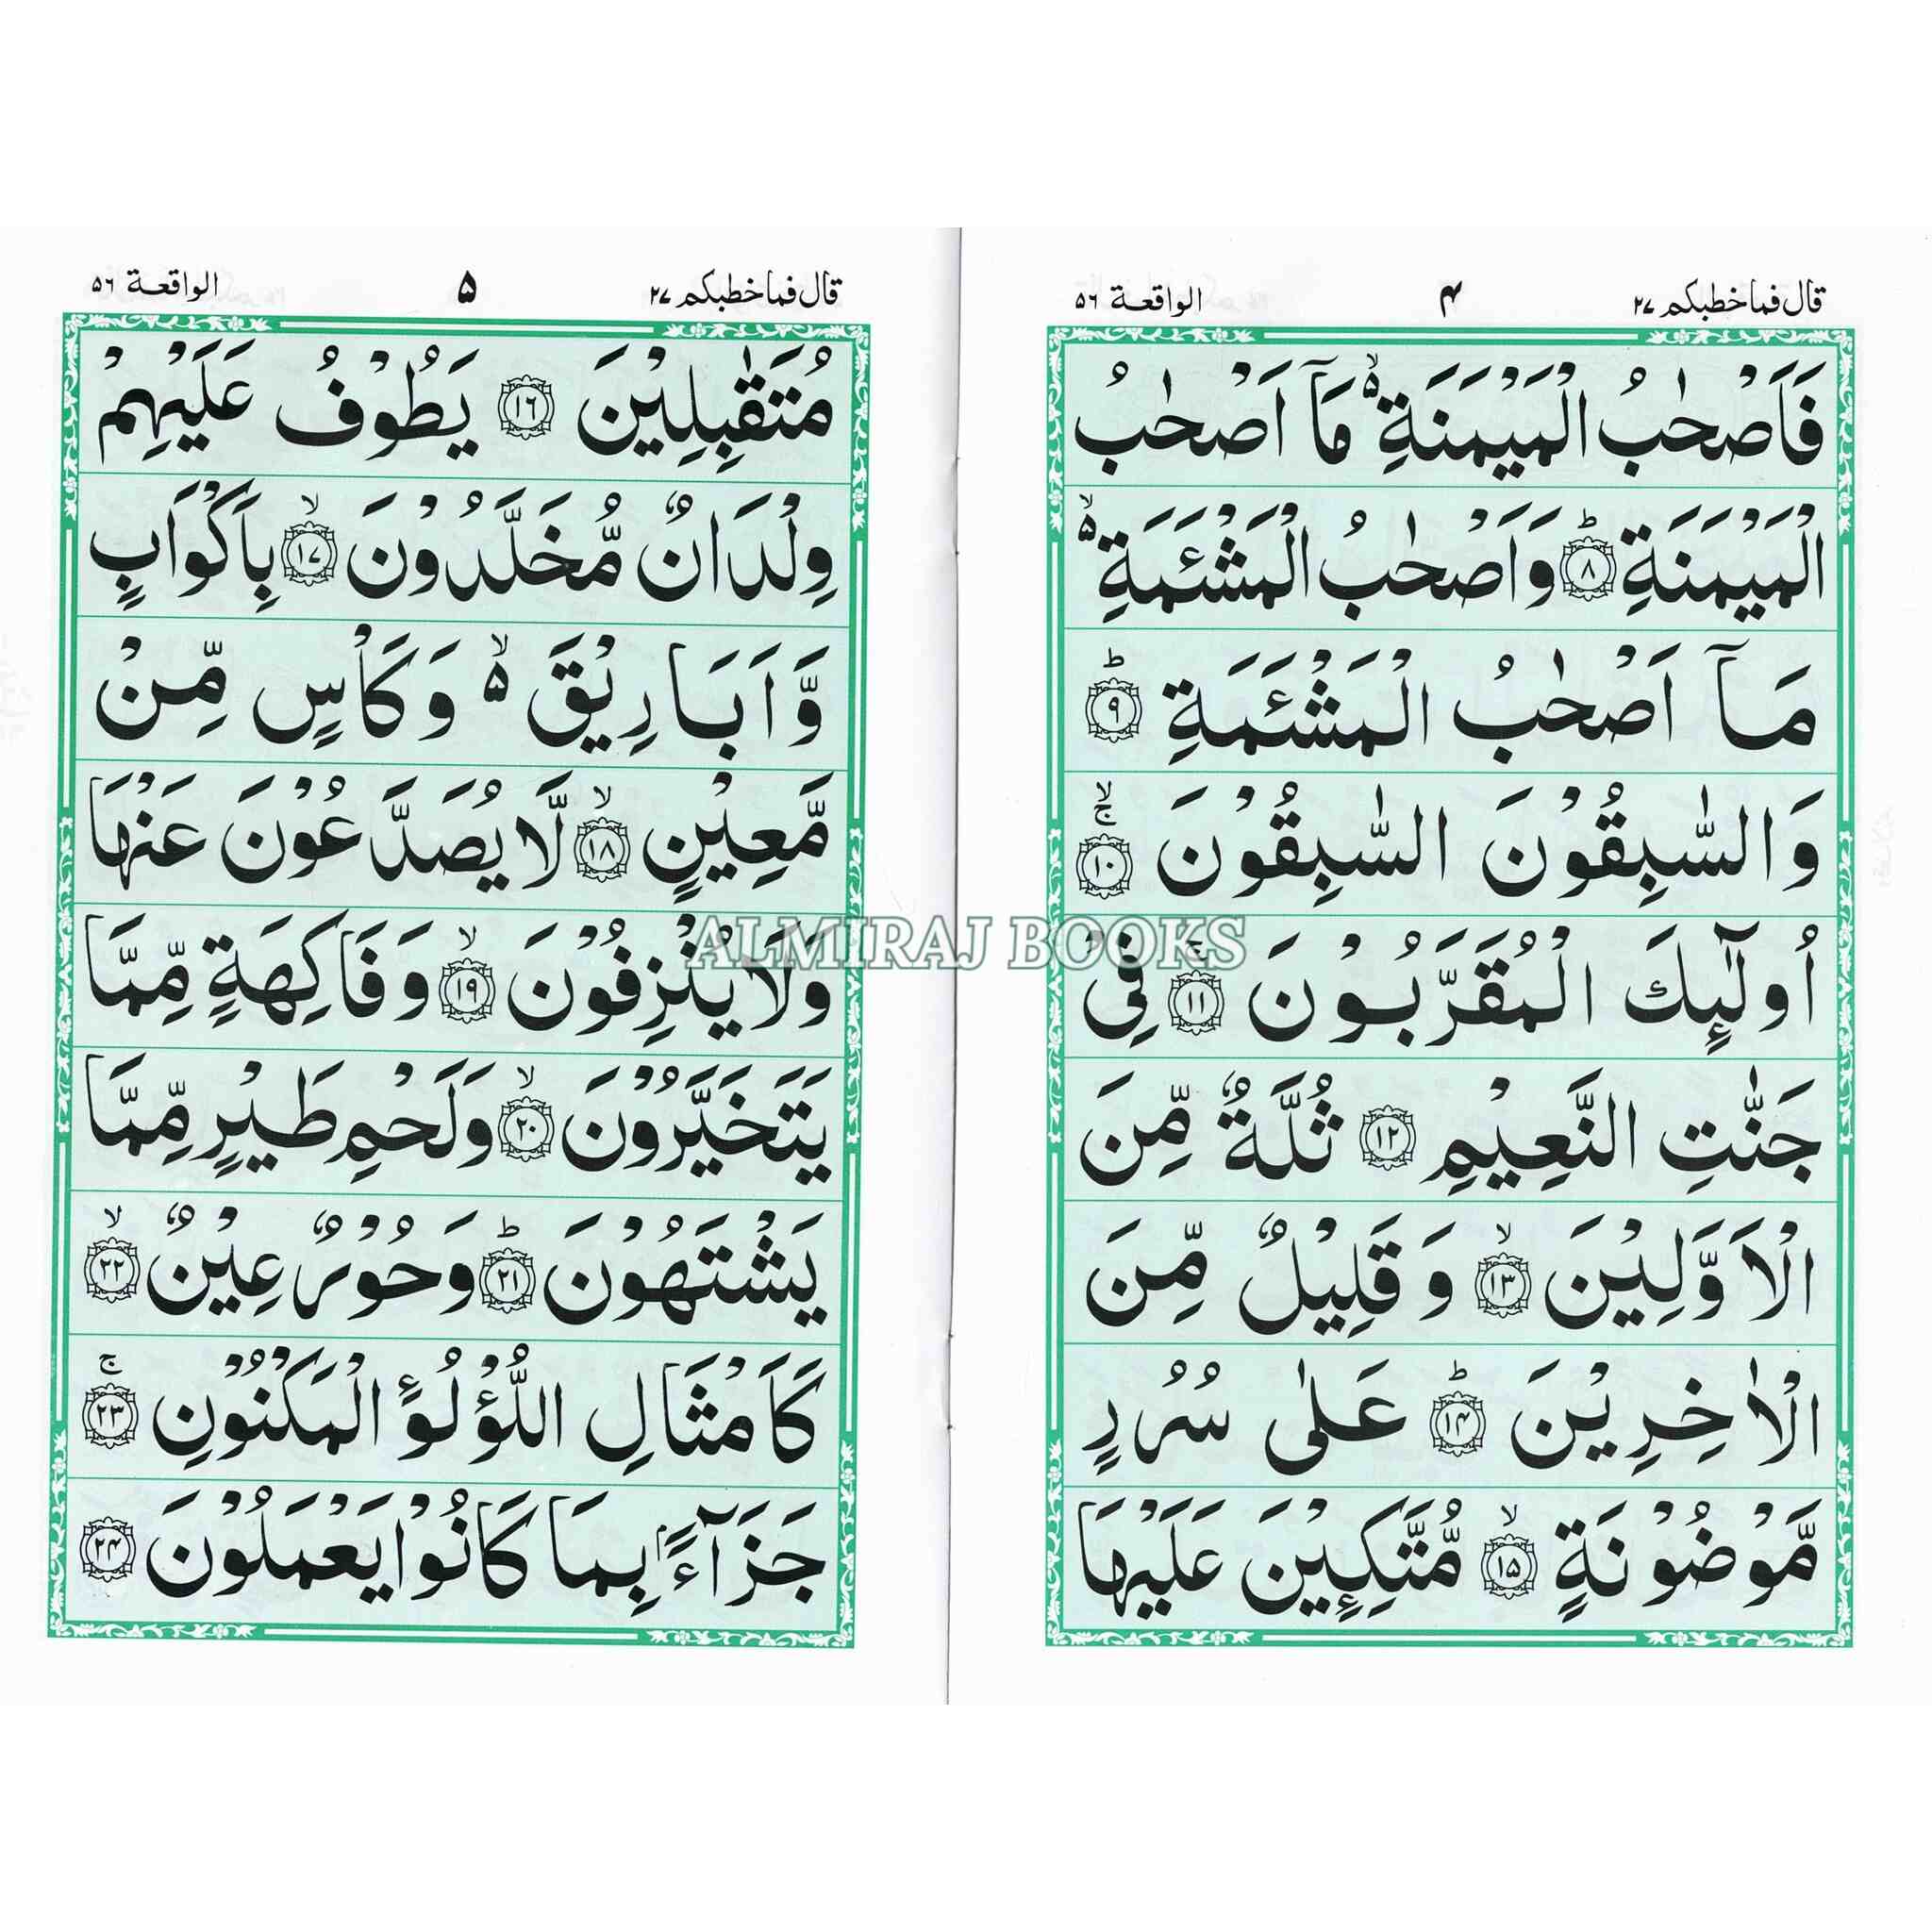 قال فما خطبكم ٢٧ ۴ الواقعة ٥٦
فَاَصْحٰبُ الْمَيْمَنَةِ ۙ۬ مَاۤ اَصْحٰبُ
الْمَيْمَنَةِ ؕ﴿۸﴾ وَاَصْحٰبُ الْمَشْـَٔمَةِ ۙ۬
مَاۤ اَصْحٰبُ الْمَشْـَٔمَةِ ؕ﴿۹﴾
وَالسّٰبِقُوْنَ السّٰبِقُوْنَ ۚۙ﴿۱۰﴾
اُولٰٓئِكَ الْمُقَرَّبُوْنَ ۚ﴿۱۱﴾ فِيْ
جَنّٰتِ النَّعِيْمِ ﴿۱۲﴾ ثُلَّةٌ مِّنَ
الْاَوَّلِيْنَ ۙ﴿۱۳﴾ وَقَلِيْلٌ مِّنَ
الْاٰخِرِيْنَ ؕ﴿۱۴﴾ عَلٰى سُرُرٍ
مَّوْضُوْنَةٍ ۙ﴿۱۵﴾ مُّتَّكِـِٕيْنَ عَلَيْهَا
قال فما خطبكم ٢٧ ۵ الواقعة ٥٦
مُتَقٰبِلِيْنَ ﴿۱۶﴾ يَطُوْفُ عَلَيْهِمْ
وِلْدَانٌ مُّخَلَّدُوْنَ ۙ﴿۱۷﴾ بِاَكْوَابٍ
وَّاَبَارِيْقَ ۙ۬ وَكَاْسٍ مِّنْ
مَّعِيْنٍ ۙ﴿۱۸﴾ لَّا يُصَدَّعُوْنَ عَنْهَا
وَلَا يُنْزِفُوْنَ ۙ﴿۱۹﴾ وَفَاكِهَةٍ مِّمَّا
يَتَخَيَّرُوْنَ ۙ﴿۲۰﴾ وَلَحْمِ طَيْرٍ مِّمَّا
يَشْتَهُوْنَ ؕ﴿۲۱﴾ وَحُوْرٌ عِيْنٌ ۙ﴿۲۲﴾
كَاَمْثَالِ اللُّؤْلُؤِ الْمَكْنُوْنِ ۚ﴿۲۳﴾
جَزَآءًۢ بِمَا كَانُوْا يَعْمَلُوْنَ ﴿۲۴﴾
ALMIRAJ BOOKS